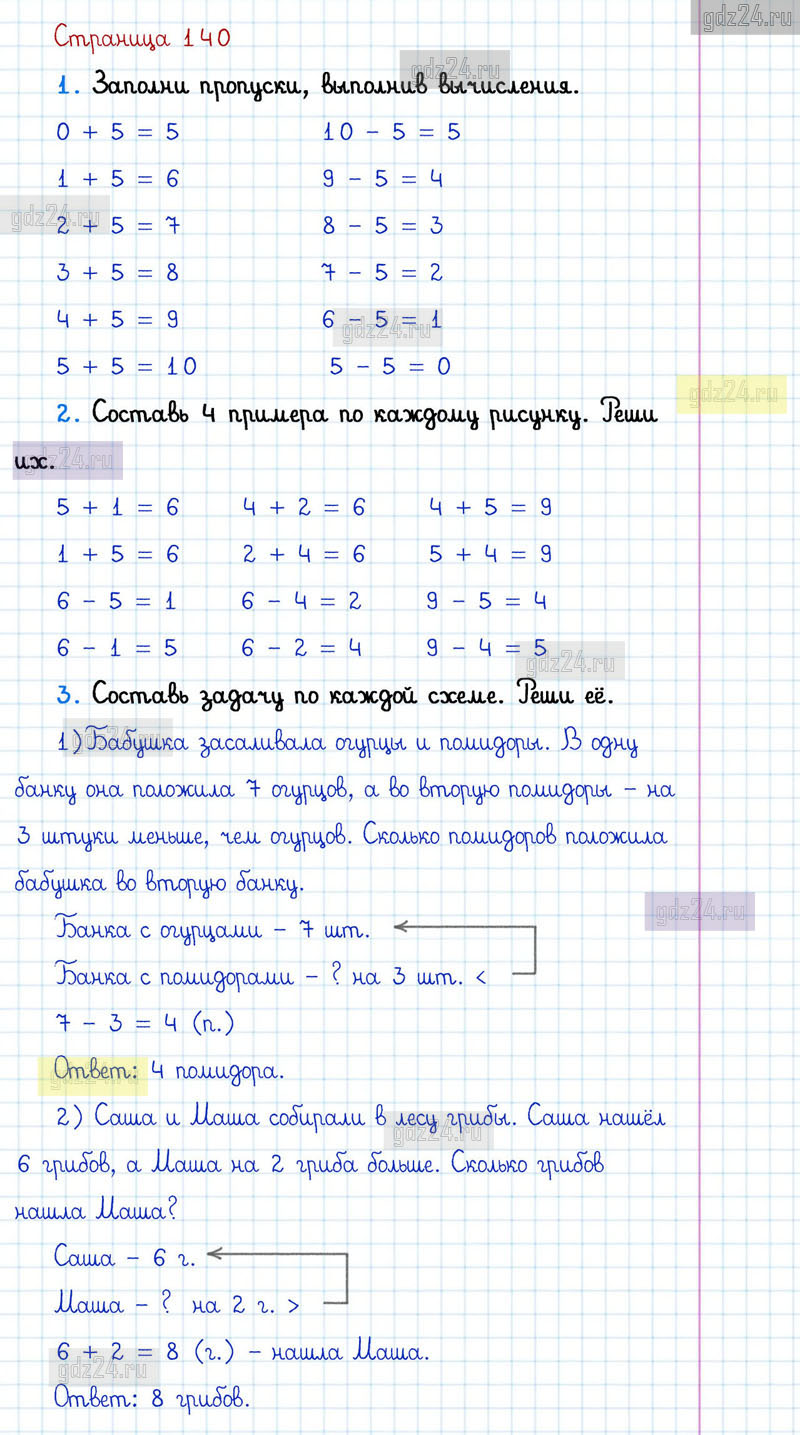 gdz24.ru
Страница 140
gdz24.ru
1. Заполни пропуски, выполнив вычисления.
0 + 5 = 5 10 - 5 = 5
1 + 5 = 6 9 - 5 = 4
gdz24.ru
2 + 5 = 7 8 - 5 = 3
3 + 5 = 8 7 - 5 = 2
4 + 5 = 9 6 - 5 = 1
gdz24.ru
5 + 5 = 10 5 - 5 = 0
gdz24.ru
2. Составь 4 примера по каждому рисунку. Реши
их.
gdz24.ru
5 + 1 = 6 4 + 2 = 6 4 + 5 = 9
1 + 5 = 6 2 + 4 = 6 5 + 4 = 9
6 - 5 = 1 6 - 4 = 2 9 - 5 = 4
6 - 1 = 5 6 - 2 = 4 9 - 4 = 5
gdz24.ru
3. Составь задачу по каждой схеме. Реши её.
gdz24.ru
1) Бабушка засаливала огурцы и помидоры. В одну
банку она положила 7 огурцов, а во вторую помидоры - на
3 штуки меньше, чем огурцов. Сколько помидоров положила
бабушка во вторую банку.
gdz24.ru
Банка с огурцами - 7 шт.
Банка с помидорами - ? на 3 шт. <
7 - 3 = 4 (п.)
gdz24.ru
Ответ: 4 помидора.
2) Саша и Маша собирали в лесу грибы. Саша нашёл
gdz24.ru
6 грибов, а Маша на 2 гриба больше. Сколько грибов
нашла Маша?
Саша - 6 г.
Маша - ? на 2 г. >
6 + 2 = 8 (г.) - нашла Маша.
gdz24.ru
Ответ: 8 грибов.